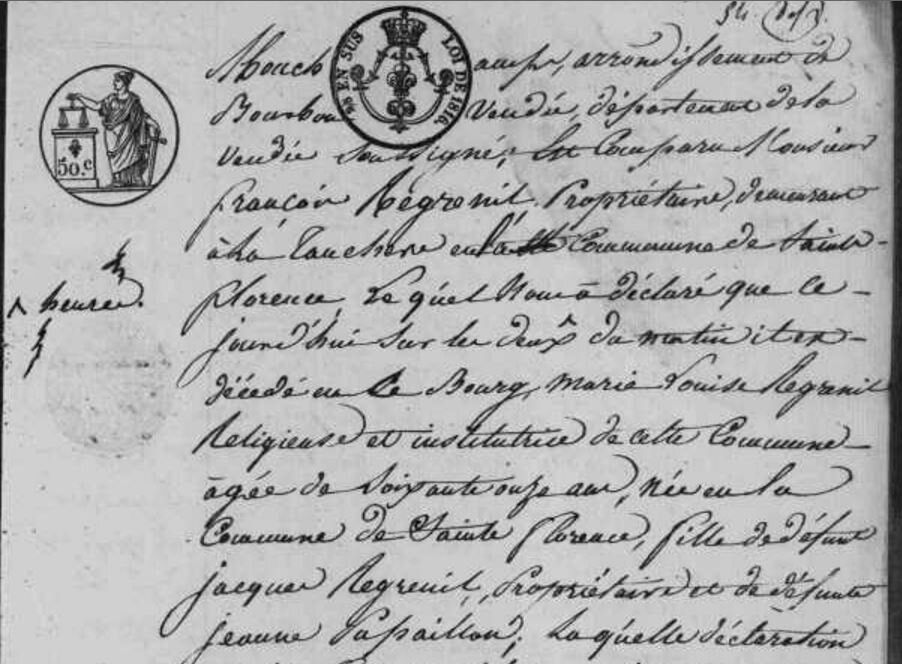 Mouch amps, arrondissement de
Bourbon Vendée, département de la
Vendée soussigné, Est Comparu Monsieur
françois Regrenil Propriétaire, demeurant
à La Tauchère en la Commune de Sainte-
florence Le quel Nous à déclaré que ce-
jourd'hui sur les deux ^ du matin il est-
décédé en Le Bourg, marie Louise Regrenil
Religieuse et institutrice de cette Commune
âgée de Soixante onze ans, née en la
Commune de Sainte florence, fille de défunt
jacques Regrenil, Propriétaire et de défunte
jeanne Papaillon; La quelle déclaration
^ heures.
EN SUS
LOI DE 1816
50.c